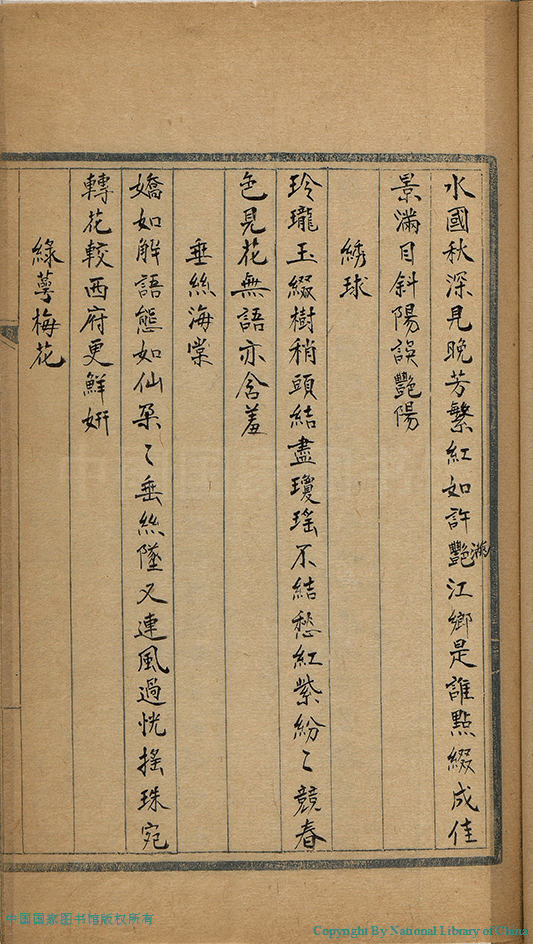 水國秋深見晚芳繁紅如許艷江鄉是誰點綴成佳
景滿目斜陽誤艷陽
綉球
玲瓏玉綴樹稍頭結盡瓊瑤不結愁紅紫紛〻競春
色見花無語亦含羞
垂絲海棠
嬌如解語態如仙朵〻垂絲墜又連風過恍搖珠宛
轉花較西府更鮮妍
綠萼梅花
中国国家图书馆版权所有
Copyright By National Library of China